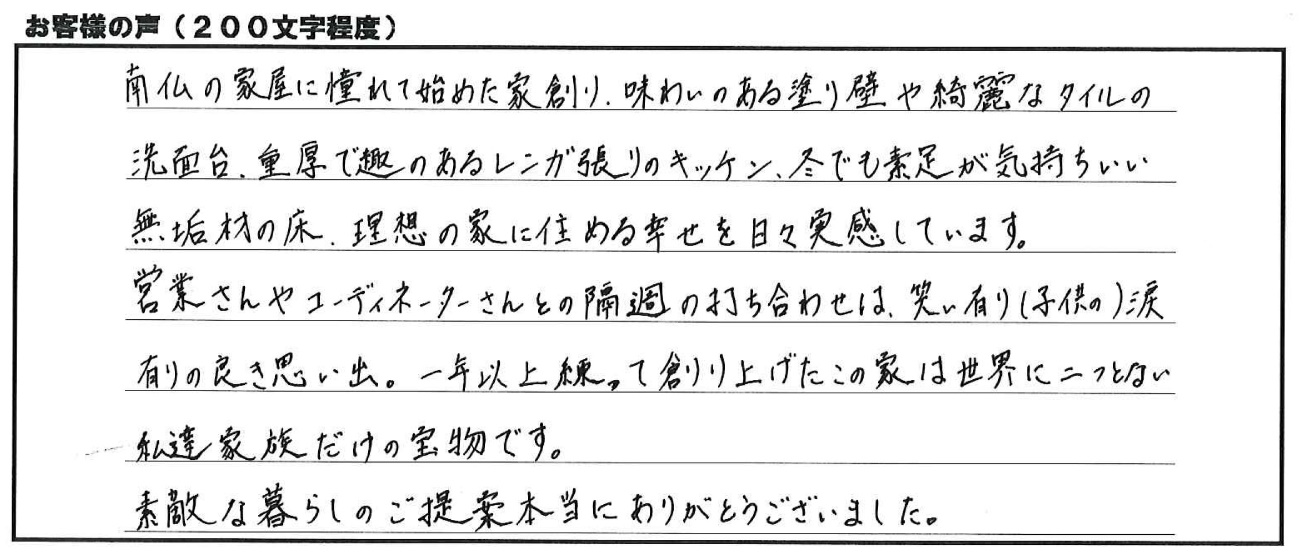 お客様の声（２００文字程度）
南仏の家屋に憧れて始めた家創り、味わいのある塗り壁や綺麗なタイルの
洗面台、重厚で趣のあるレンガ張りのキッチン、冬でも素足が気持ちいい
無垢材の床、理想の家に住める幸せを日々実感しています。
営業さんやコーディネーターさんとの隔週の打ち合わせは、笑い有り(子供の)涙
有りの良き思い出。一年以上練って創り上げたこの家は世界に二つとない
私達家族だけの宝物です。
素敵な暮らしのご提案本当にありがとうございました。